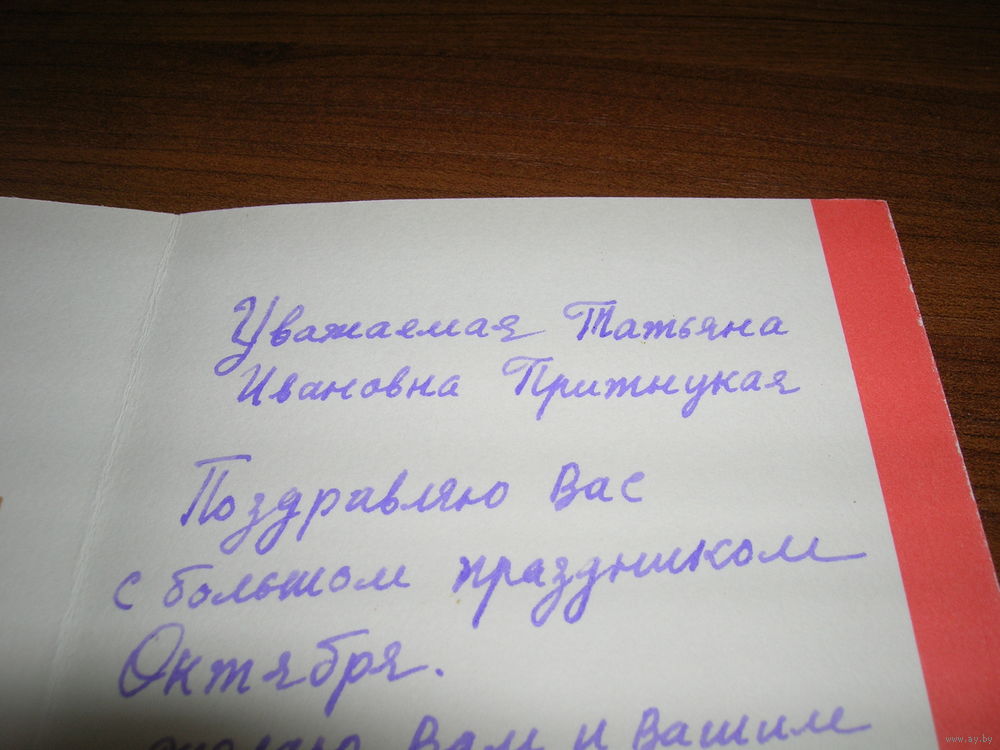 Уважаемая Татьяна
Ивановна Притыцкая
Поздравляю Вас
с большом праздником
Октября.
желаю Вам и Вашим
www.ay.by